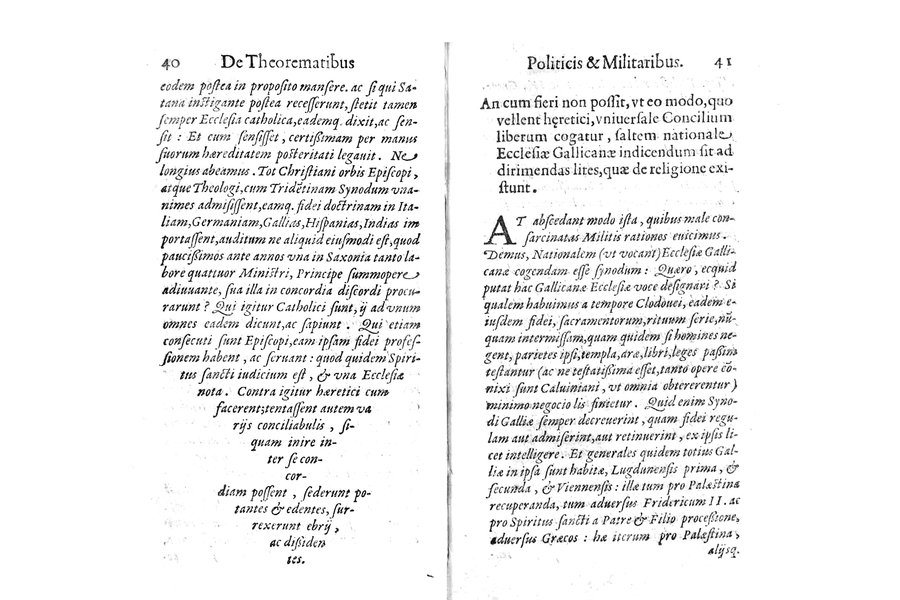 40 De Theorematibus
eodem postea in proposito mansere. ac si qui Sa-
tana instigante postea recesserunt, stetit tamen
semper Ecclesia catholica, eademq. dixit, ac sen-
sit : Et cum sensisset , certißimam per manus
suorum hæreditatem posteritati legauit . Ne
longius abeamus . Tot Christiani orbis Episcopi ,
atque Theologi, cum Tridẽtinam Synodum vna-
nimes admisissent, eamq. fidei doctrinam in Ita-
liam, Germaniam, Gallias, Hispanias, Indias im
portassent, auditum ne aliquid eiusmodi est, quod
paucißimos ante annos vna in Saxonia tanto la-
bore quattuor Ministri, Principe summopere
adiuuante, sua illa in concordia discordi procu-
rarunt ? Qui igitur Catholici sunt, ij ad vnum
omnes eadem dicunt, ac sapiunt . Qui etiam
consecuti sunt Episcopi, eam ipsam fidei profes-
sionem habent , ac seruant : quod quidem Spiri-
tus sancti iudicium est , & vna Ecclesiæ
nota . Contra igitur hæretici cum
facerent; tentassent autem va
rijs conciliabulis , si-
quam inire in-
ter se con-
cor-
diam possent , sederunt po-
tantes & edentes, sur-
rexerunt ebrij ,
ac dißiden
tes.
Politicis & Militaribus. 41
An cum fieri non possit, vt eo modo, quo
vellent hęretici, vniuersale Concilium
liberum cogatur , saltem nationale
Ecclesiæ Gallicanæ indicendum sit ad
dirimendas lites, quæ de religione exi-
stunt .
AT abscedant modo ista , quibus male con-
sarcinatas Militis rationes euicimus .
Demus, Nationalem (vt vocant) Ecclesiæ Galli-
canæ cogendam esse synodum : Quæro , ecquid
putat hac Gallicanæ Ecclesiæ voce designari ? Si
qualem habuimus a tempore Clodouei, eadem e-
iusdem fidei, sacramentorum, rituum serie, nũ-
quam intermissam, quam quidem si homines ne-
gent, parietes ipsi, templa, aræ, libri, leges passim
testantur (ac ne testatißima esset, tanto opere cõ-
nixi sunt Caluiniani , vt omnia obtererentur )
minimo negocio lis finietur . Quid enim Syno-
di Galliæ semper decreuerint , quam fidei regu-
lam aut admiserint, aut retinuerint , ex ipsis li-
cet intelligere . Et generales quidem totius Gal-
liæ in ipsa sunt habitæ, Lugdunensis prima , &
secunda , & Viennensis : illæ tum pro Palæstina
recuperanda, tum aduersus Fridericum II. ac
pro Spiritus sancti a Patre & Filio proceßione,
aduersus Græcos : hæ iterum pro Palæstina ,
alijsq.